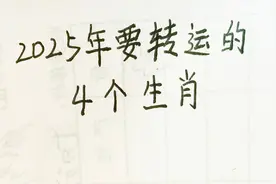 2025年要转运的
4个生肖